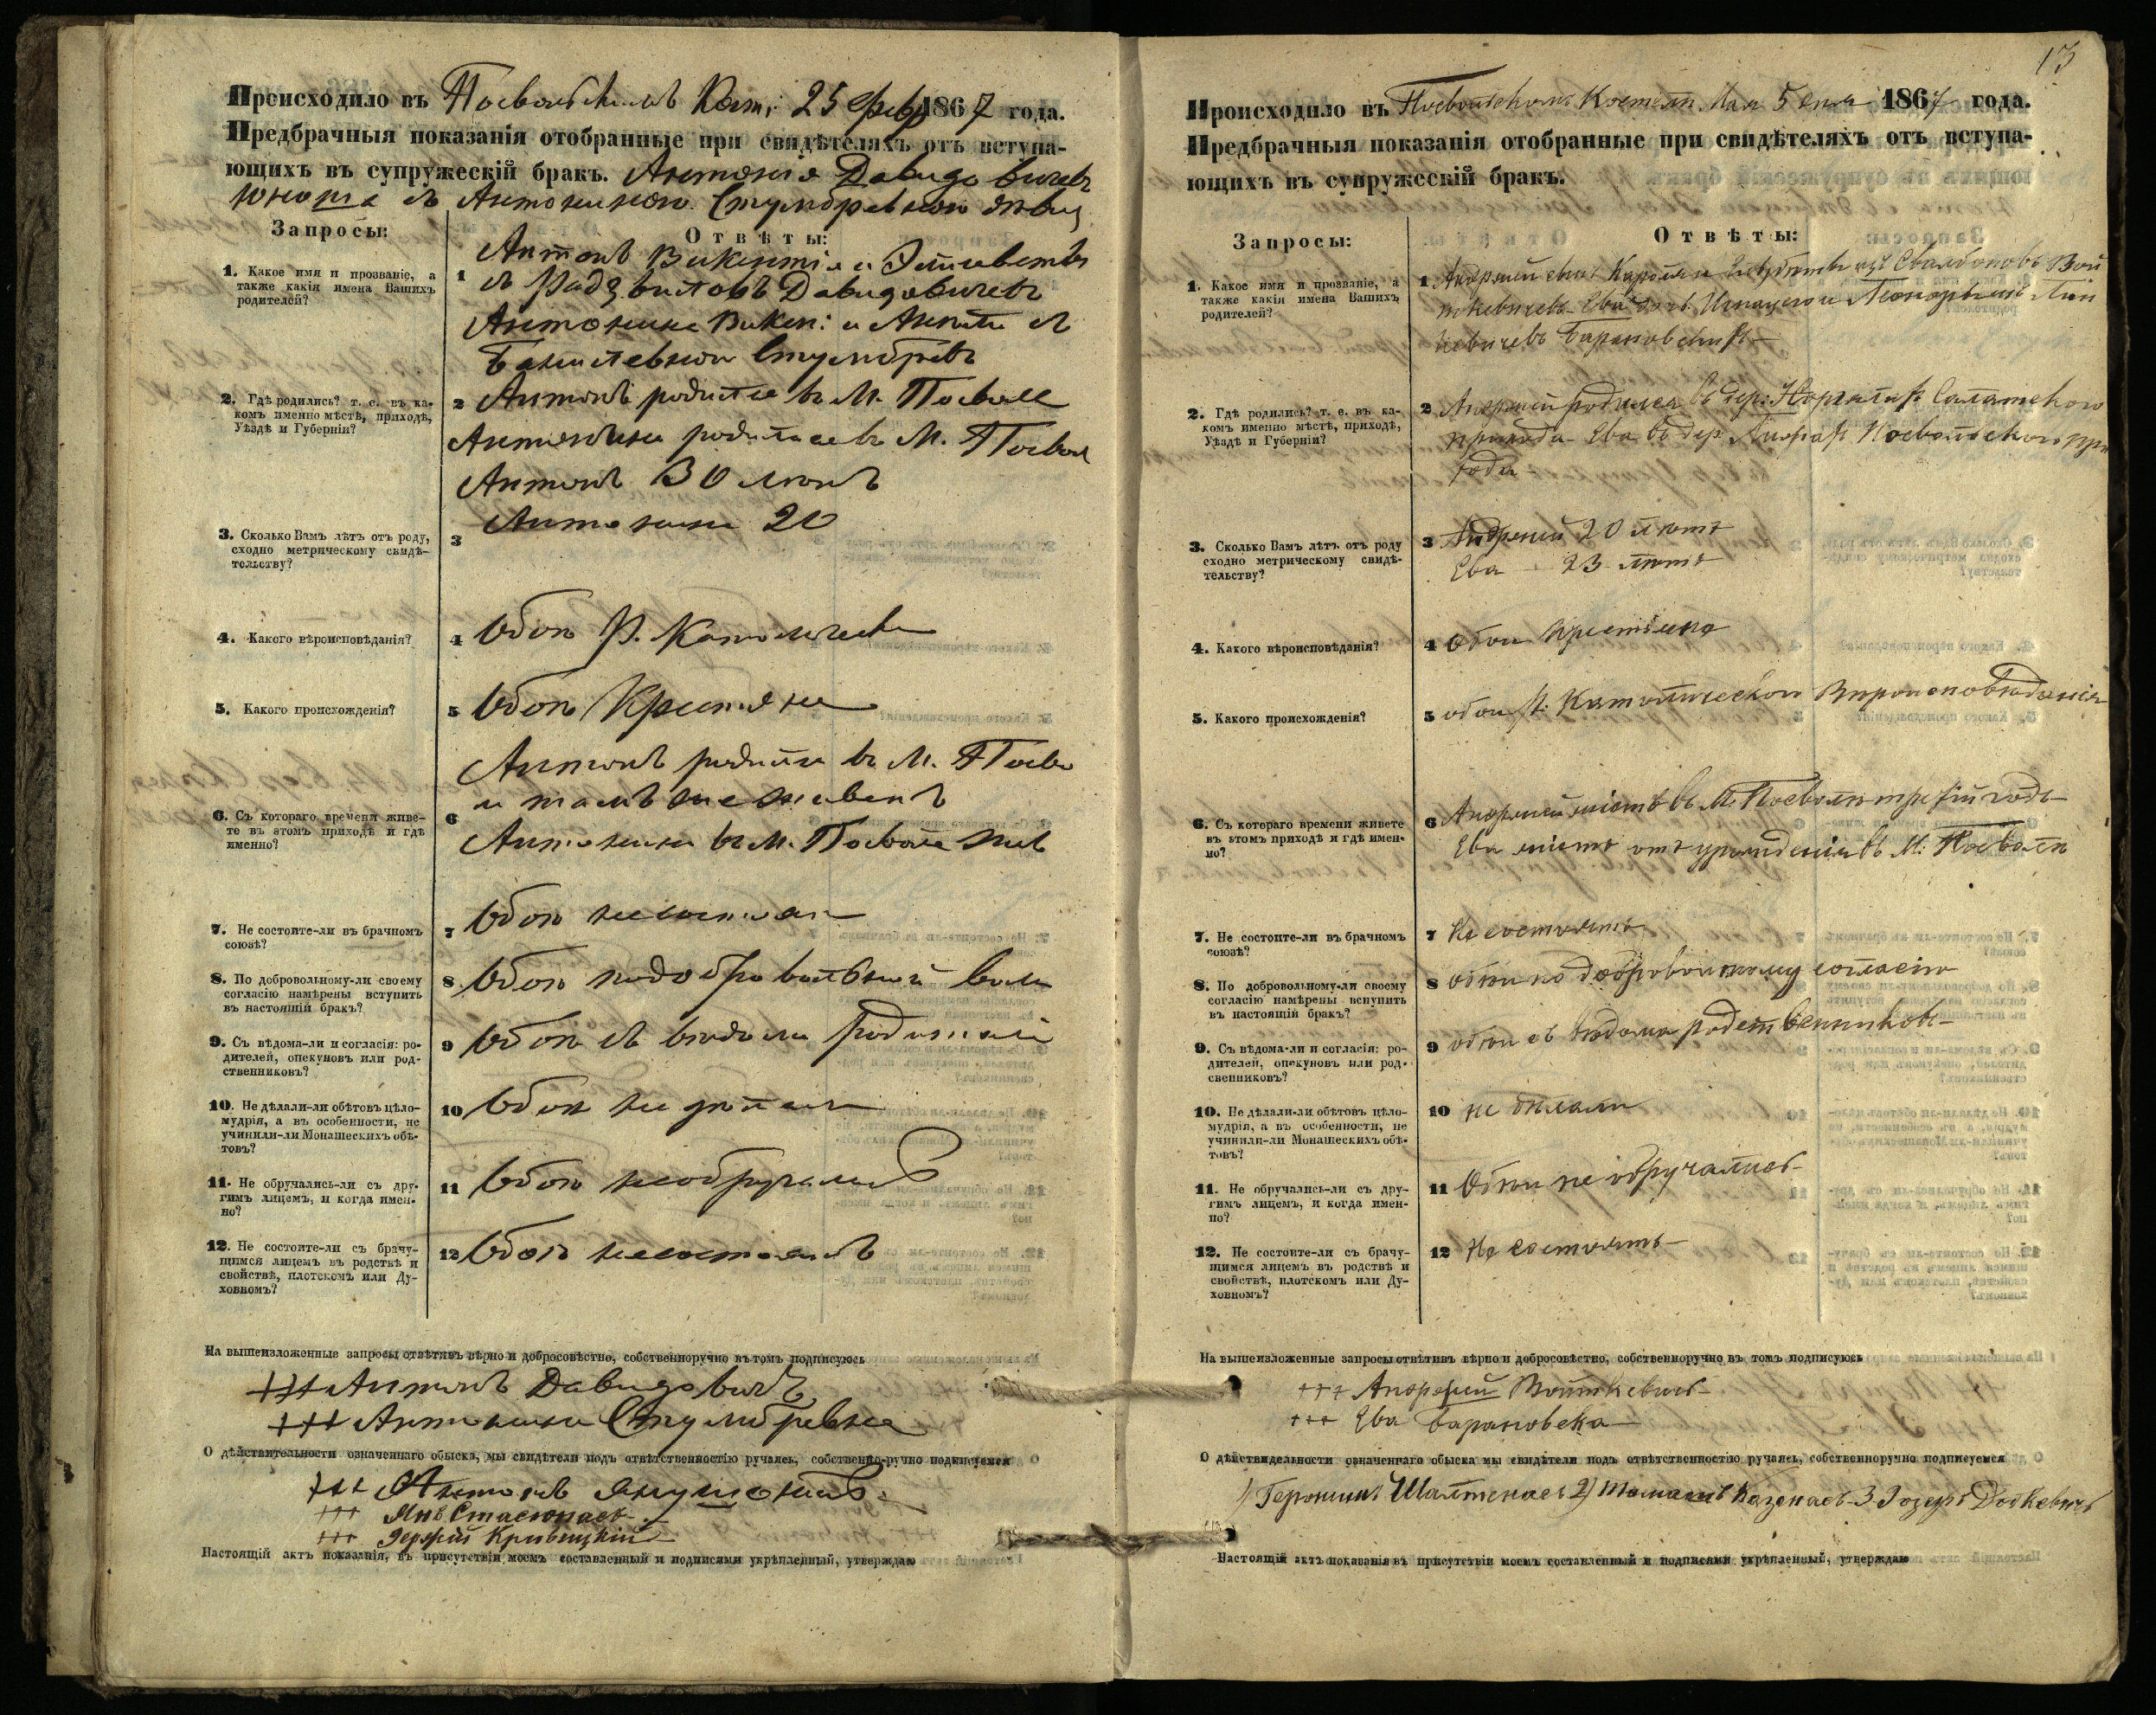 Происходило въ Посвольскомъ Кост: 25 Февр 1867 года.
Предбрачныя показанія отобранные при свидѣтеляхъ отъ вступа-
ющихъ въ супружескій бракъ. Антонія Давидовичевъ
юноша съ Антониною Стумбревною дѣвиц
Запросы:
Отвѣты:
1. Какое имя и прозваніе, а
также какія имена Вашихъ
родителей?
1 Антонъ Викентія и Элисаветы
съ Давидовичевъ
Антонина Викен: и
Стумбревъ
2. Гдѣ родились? т. е. въ ка-
комъ именно мѣстѣ, приходѣ,
Уѣздѣ и Губерніи?
2 Антонъ родился въ М. Посволе
Антонина родилась въ М. Посвол
Антонъ 30 лѣтъ
3. Сколько Вамъ лѣтъ отъ роду,
сходно метрическому свидѣ-
тельству?
3 Антонина 20
4. Какого вѣроисповѣданія?
4 Обои Р. Католически
5. Какого происхожденія?
5 Обои Крестяне
6. Съ котораго времени живе-
те въ этомъ приходѣ и гдѣ
именно?
6 Антонъ родился въ М. Посво
и тамъ же живетъ
Антонина въ М. Посволе жив
7. Не состоите-ли въ брачномъ
союзѣ?
7 Обои несостоят
8. По добровольному-ли своему
согласію намѣрены вступить
въ настоящій бракъ?
8 Обои подобровольной воли
9. Съ вѣдома-ли и согласія: ро-
дителей, опекуновъ или род-
ственниковъ?
9 Обои съ вѣдома Родителей
10. Не дѣлали-ли обѣтовъ цѣло-
мудрія, а въ особенности, не
учинили-ли Монашескихъ обѣ-
товъ?
10 Обои не дѣлали
11. Не обручались-ли съ дру-
гимъ лицемъ, и когда имен-
но?
11 Обои необручались
12. Не состоите-ли съ брачу-
щимся лицемъ въ родствѣ и
свойствѣ, плотскомъ или Ду-
ховномъ?
12 Обои несостоятъ
На вышеизложенные запросы отвѣтивъ вѣрно и добросовѣстно, собственноручно въ томъ подписуюсь
+++ Антонъ Давидовичъ
+++ Антонина Стумбревна
О дѣйствительности означеннаго обыска, мы свидѣтели подъ отвѣтственностію ручаясь, собственно-ручно подписуемся
+++ Антонъ Янушонисъ
+++ Янъ Стасюнасъ
+++ Кривицкій
Настоящій актъ показанія, въ присутствіи моемъ составленный и подписями укрѣпленный, утверждаю
13
Происходило въ Посвольскомъ Костелѣ Мая 5 дня 1867 года.
Предбрачныя показанія отобранные при свидѣтеляхъ отъ вступа-
ющихъ въ супружескій бракъ.
Запросы:
Отвѣты:
1. Какое имя и прозваніе, а
также какія имена Вашихъ
родителей?
1 Андржей сынъ Кароля и Елисаветы изъ Вой
ткевичевъ Ева дочь Игнацего и
Барановскихъ
2. Гдѣ родились? т. е. въ ка-
комъ именно мѣстѣ, приходѣ,
Уѣздѣ и Губерніи?
2 Андржей родился въ дер: Салатскаго
прихода Ева въ дер. Посвольскаго при
хода
3. Сколько Вамъ лѣтъ отъ роду
сходно метрическому свидѣ-
тельству?
3 Андржей 20 лѣтъ
Ева 23 лѣтъ
4. Какого вѣроисповѣданія?
4 обои крестьяне
5. Какого происхожденія?
5 обои Р: Католическаго Вѣроисповѣданія
6. Съ котораго времени живете
въ этомъ приходѣ и гдѣ имен-
но?
6 Андржей живетъ въ М. Посволѣ третій годъ
Ева живетъ отъ урожденія въ М: Посволѣ
7. Не состоите-ли въ брачномъ
союзѣ?
7 Не состоятъ
8. По добровольному-ли своему
согласію намѣрены вснупить
въ настоящій бракъ?
8 обои по добровольному согласію
9. Съ вѣдома-ли и согласія: ро-
дителей, опекуновъ или род-
свенниковъ?
9 обои съ вѣдома родственниковъ
10. Не дѣлали-ли обѣтовъ цѣло-
мудрія, а въ особенности, не
учинили-ли Монашескихъ обѣ-
товъ?
10 не дѣлали
11. Не обручались-ли съ дру-
гимъ лицемъ, и когда имен-
но?
11 Обои не обручались
12. Не состоите-ли съ брачу-
щимся лицемъ въ родствѣ и
свойствѣ, плотскомъ или Ду-
ховномъ?
12 Не состоятъ
На вышеизложенные запросы отвѣтивъ вѣрно и добросовѣстно, собственноручно въ томъ подписуюсь
+++ Андржей Войткевичъ
+++ Ева Барановска
О дѣйствидельности означеннаго обыска мы свидѣтели подъ отвѣтственностію ручаясь, собственноручно подписуемся
1) Геронимъ Шалтенасъ 2) Томашъ Казенасъ 3 Іозефъ Доткевичъ
Настоящій актъ показанія въ присутствіи моемъ составленный и подписями укрѣпленый, утверждаю